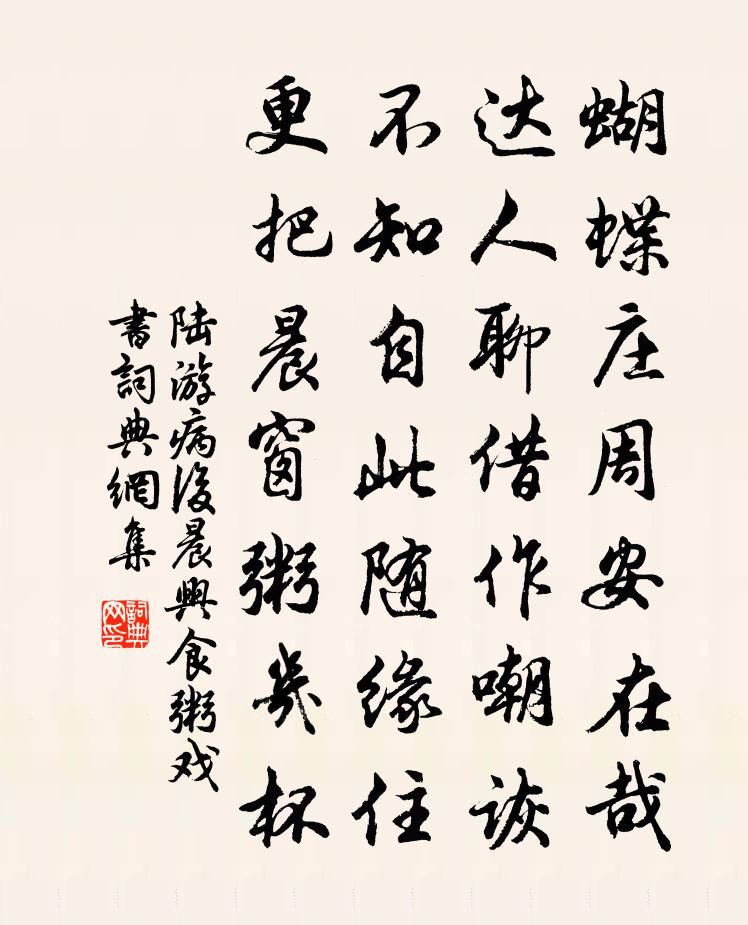 蝴蝶庄周安在哉
达人聊借作嘲诙
不知自此随缘住
更把晨窗粥几杯
陆游病後晨興食粥戏
書詞典網集
詞典
网印